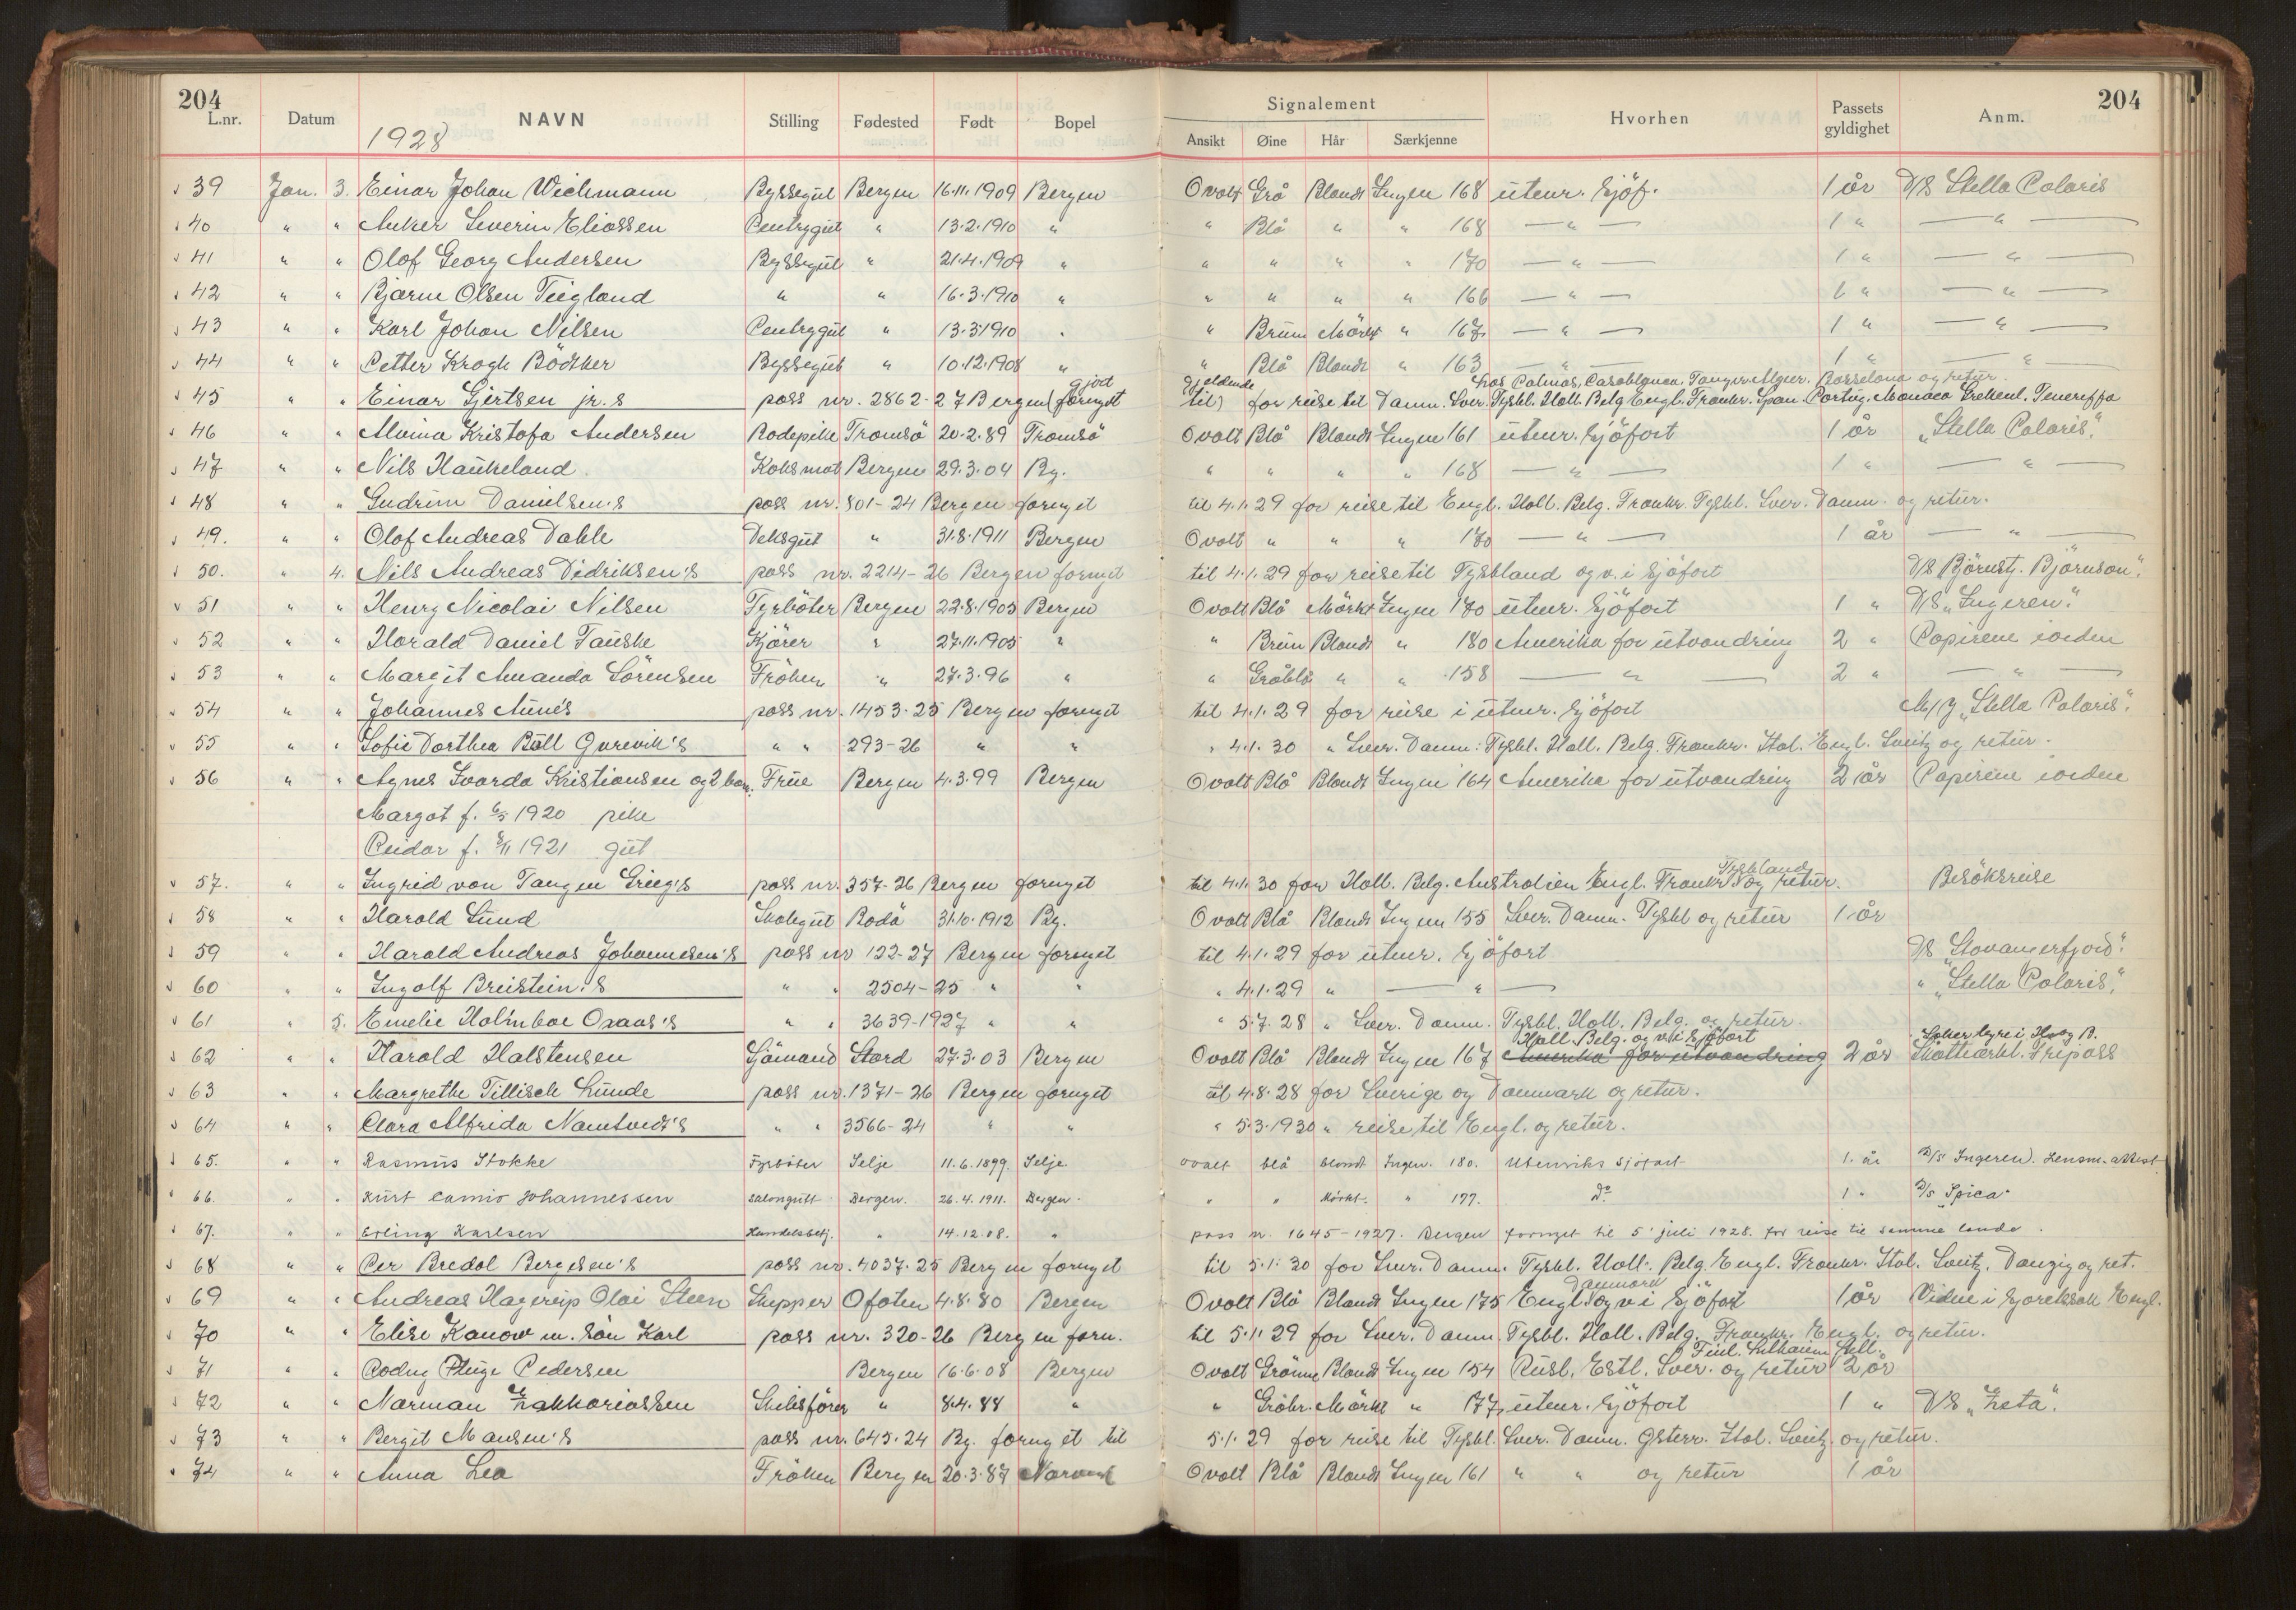 204 204
L.nr. Datum NAVN Stilling Fødested Født Bopel Signalement Hvorhen Passets gyldighet Anm.
1928 Ansikt Øine Hår Særkjenne
39 Jan. 3. Einar Johan Wichmann Byssegut Bergen 16.11.1909 Bergen Ovalt Grå Blondt Ingen 168 utenr. Sjöf. 1 år D/S Stella Polaris
40 " " Anker Severin Eliassen Pentrygut " 13.2.1910 " " Blå " " 168 — " — 1 " — " —
41 " " Olaf Georg Andersen Byssegut " 21.4.1909 " " " " " 170 — " — 1 " — " —
42 " " Bjarne Olsen Teigland " " 16.3.1910 " " " " " 166 — " — 1 " — " —
43 " " Karl Johan Nilsen Pentrygut " 13.3.1910 " " Brun Mörkt " 167 — " — 1 " — " —
44 " " Petter Krogh Bödtker Byssegut " 10.12.1908 " " Blå Blondt " 163 — " — 1 " — " —
gjort gjeldende Las Palmas, Casablanca, Tanger, Algier, Basselona og retur.
45 " " Einar Gjertsen jr.s pass nr. 2862-27 Bergen (fornyet til) for reise til Danm. Sver. Tyskl. Holl. Belg. Engl. Frankr. Span. Portug. Monaco Grekenl. Teneriffa
46 " " Alvina Kristofa Andersen Badepike Tromsö 20.2.89 Tromsö Ovalt Blå Blondt Ingen 161 utenr. Sjöfart 1 år "Stella Polaris".
47 " " Nils Haukeland Koksmat Bergen 29.3.04 Bg. " " " " 168 — " — 1 " — " —
48 " " Gudrun Danielsen's pass nr. 801-24 Bergen fornyet til 4.1.29 for reise til Engl. Holl. Belg. Frankr. Tyskl. Sver. Danm. og retur.
49. " " Olaf Andreas Dahle Deksgut " 31.8.1911 Bergen Ovalt " " " 170 — " — 1 år — " —
50. " 4. Nils Andreas Didriksen's pass nr. 2214-26 Bergen fornyet til 4.1.29 for reise til Tyskland og v. i Sjöfart D/S "Björnstj. Björnson".
51 " " Henry Nicolai Nilsen Fyrböter Bergen 22.8.1905 Bergen Ovalt Blå Mörkt Ingen 170 utenr. Sjöfart 1 " D/S "Ingeren".
52 " " Harald Daniel Fauske Kjörer " 27.11.1905 " " Brun Blondt " 180 Amerika for utvandring 2 " Papirene iorden
53 " " Margit Amanda Sörensen Fröken " 27.3.96 " " Gråblå " " 158 — " — 2 " — " —
54 " " Johannes Aune's pass nr. 1453-25 Bergen fornyet til 4.1.29 for reise i utenr. Sjöfart M/Y "Stella Polaris".
55 " " Sofie Dorthea Böll Gvrevik's " " 293-26 " " " 4.1.30 " Sver. Danm. Tyskl. Holl. Belg. Frankr. Ital. Engl. Sveitz og retur.
56 " " Agnes Svarda Kristiansen og 2 barn. Frue Bergen 4.3.99 Bergen Ovalt Blå Blondt Ingen 164 Amerika for utvandring 2 år Papirene iorden
Margot f. 6/5 1920 pike
Reidar f. 8/11 1921 gut
Tyskland
57. " " Ingrid von Tangen Grieg's pass nr. 357-26 Bergen fornyet til 4.1.30 for Holl. Belg. Australien Engl. Frankr. og retur. Besöksreise
58 " " Harald Lund Skolegut Bodö 31.10.1912 Bg. Ovalt Blå Blondt Ingen 155 Sver. Danm. Tyskl og retur 1 år
59 " " Harald Andreas Johannesen's pass nr 122-27 Bergen fornyet til 4.1.29 for utenr. Sjöfart D/S "Stavangerfjord".
60 " " Ingolf Breistein's " " 2504-25 " " " 4.1.29 " — " — " "Stella Polaris".
61 " 5. Emelie Holmboe Oxaas's " " 3639-1927 " " " 5.7.28 " Sver. Danm. Tyskl. Holl. Belg. og retur.
Holl. Belg. og v. i Sjöfart
62 " " Harald Halstensen Sjömand Stord 27.3.03 Bergen Ovalt Blå Blondt Ingen 167 Amerika for utvandring 2 år Skatteerkl. Fripass
63 " " Margrethe Tillisch Lunde pass nr. 1371-26 Bergen fornyet til 4.8.28 for Sverige og Danmark og retur.
64 " " Clara Alfrida Namtvedt's " " 3566-24 " " " 5.3.1930 " reise til Engl. og retur.
65. " " Rasmus Stokke Fyrböter Selje 11.6.1899 Selje ovalt blå blondt Ingen. 180. Utenriks Sjöfart 1. år D/S Ingeren. Lensm. attest
66. " " Kurt Camio Johannessen Salongutt Bergen. 26.4.1911. Bergen. " " Mörkt. " 177. do 1 " D/S "Spica"
67. " " Erling Karlsen Handelsbetj. " 14.12.08. " pass nr. 1645-1927. Bergen fornyet til 5' juli 1928. for reise til samme lande.
68 " " Per Bredal Bergesen's pass nr. 4037-25 Bergen fornyet til 5.1.30 for Sver. Danm. Tyskl. Holl. Belg. Engl. Frankr. Ital. Sveitz. Danzig og ret.
Danmark
69 " " Andreas Hagerup Olai Steen Skipper Ofoten 4.8.80 Bergen Ovalt Blå Blondt Ingen 175 Engl. og v i Sjöfart 1 år
70 " " Elise Kanow m. sön Karl pass nr. 320-26 Bergen forn. til 5.1.29 for Sver. Danm. Tyskl. Holl. Belg. Frankr. Engl. og retur.
71 " " Rodny Fluge Pedersen Bergen 16.6.08 Bergen Ovalt Grönne Blondt Ingen 154 Rusl. Estl. Sver. og retur 2 år
72 " " Norman Zakkariassen Skibsförer " 8.4.88 " " Gråbr. Mörkt " 177 utenr. Sjöfart 1 " D/S "Zeta".
73 " " Bergit Mansen's pass nr. 645-24 Bg. fornyet til 5.1.29 for reise til Tyskl. Sver. Danm. Österr. Ital. Sveitz. og retur.
74 " " Anna Lea Fröken Bergen 20.3.87 Ovalt Blå Blondt Ingen 161 " " og retur 1 år